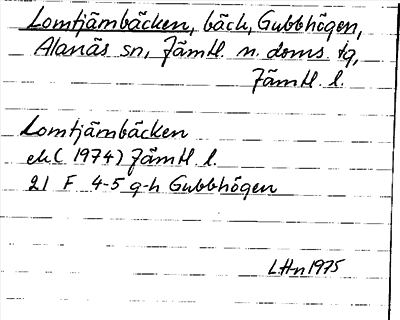 Lomtjämbäcken, bäck, Gubbhögen,
Alanäs sn, Jämtl. n. doms. tg,
Jämtl. l.
Lomtjämbäcken
ek (1974) Jämtl. l.
21 F 4-5 g-h Gubbhögen
LHn 1975